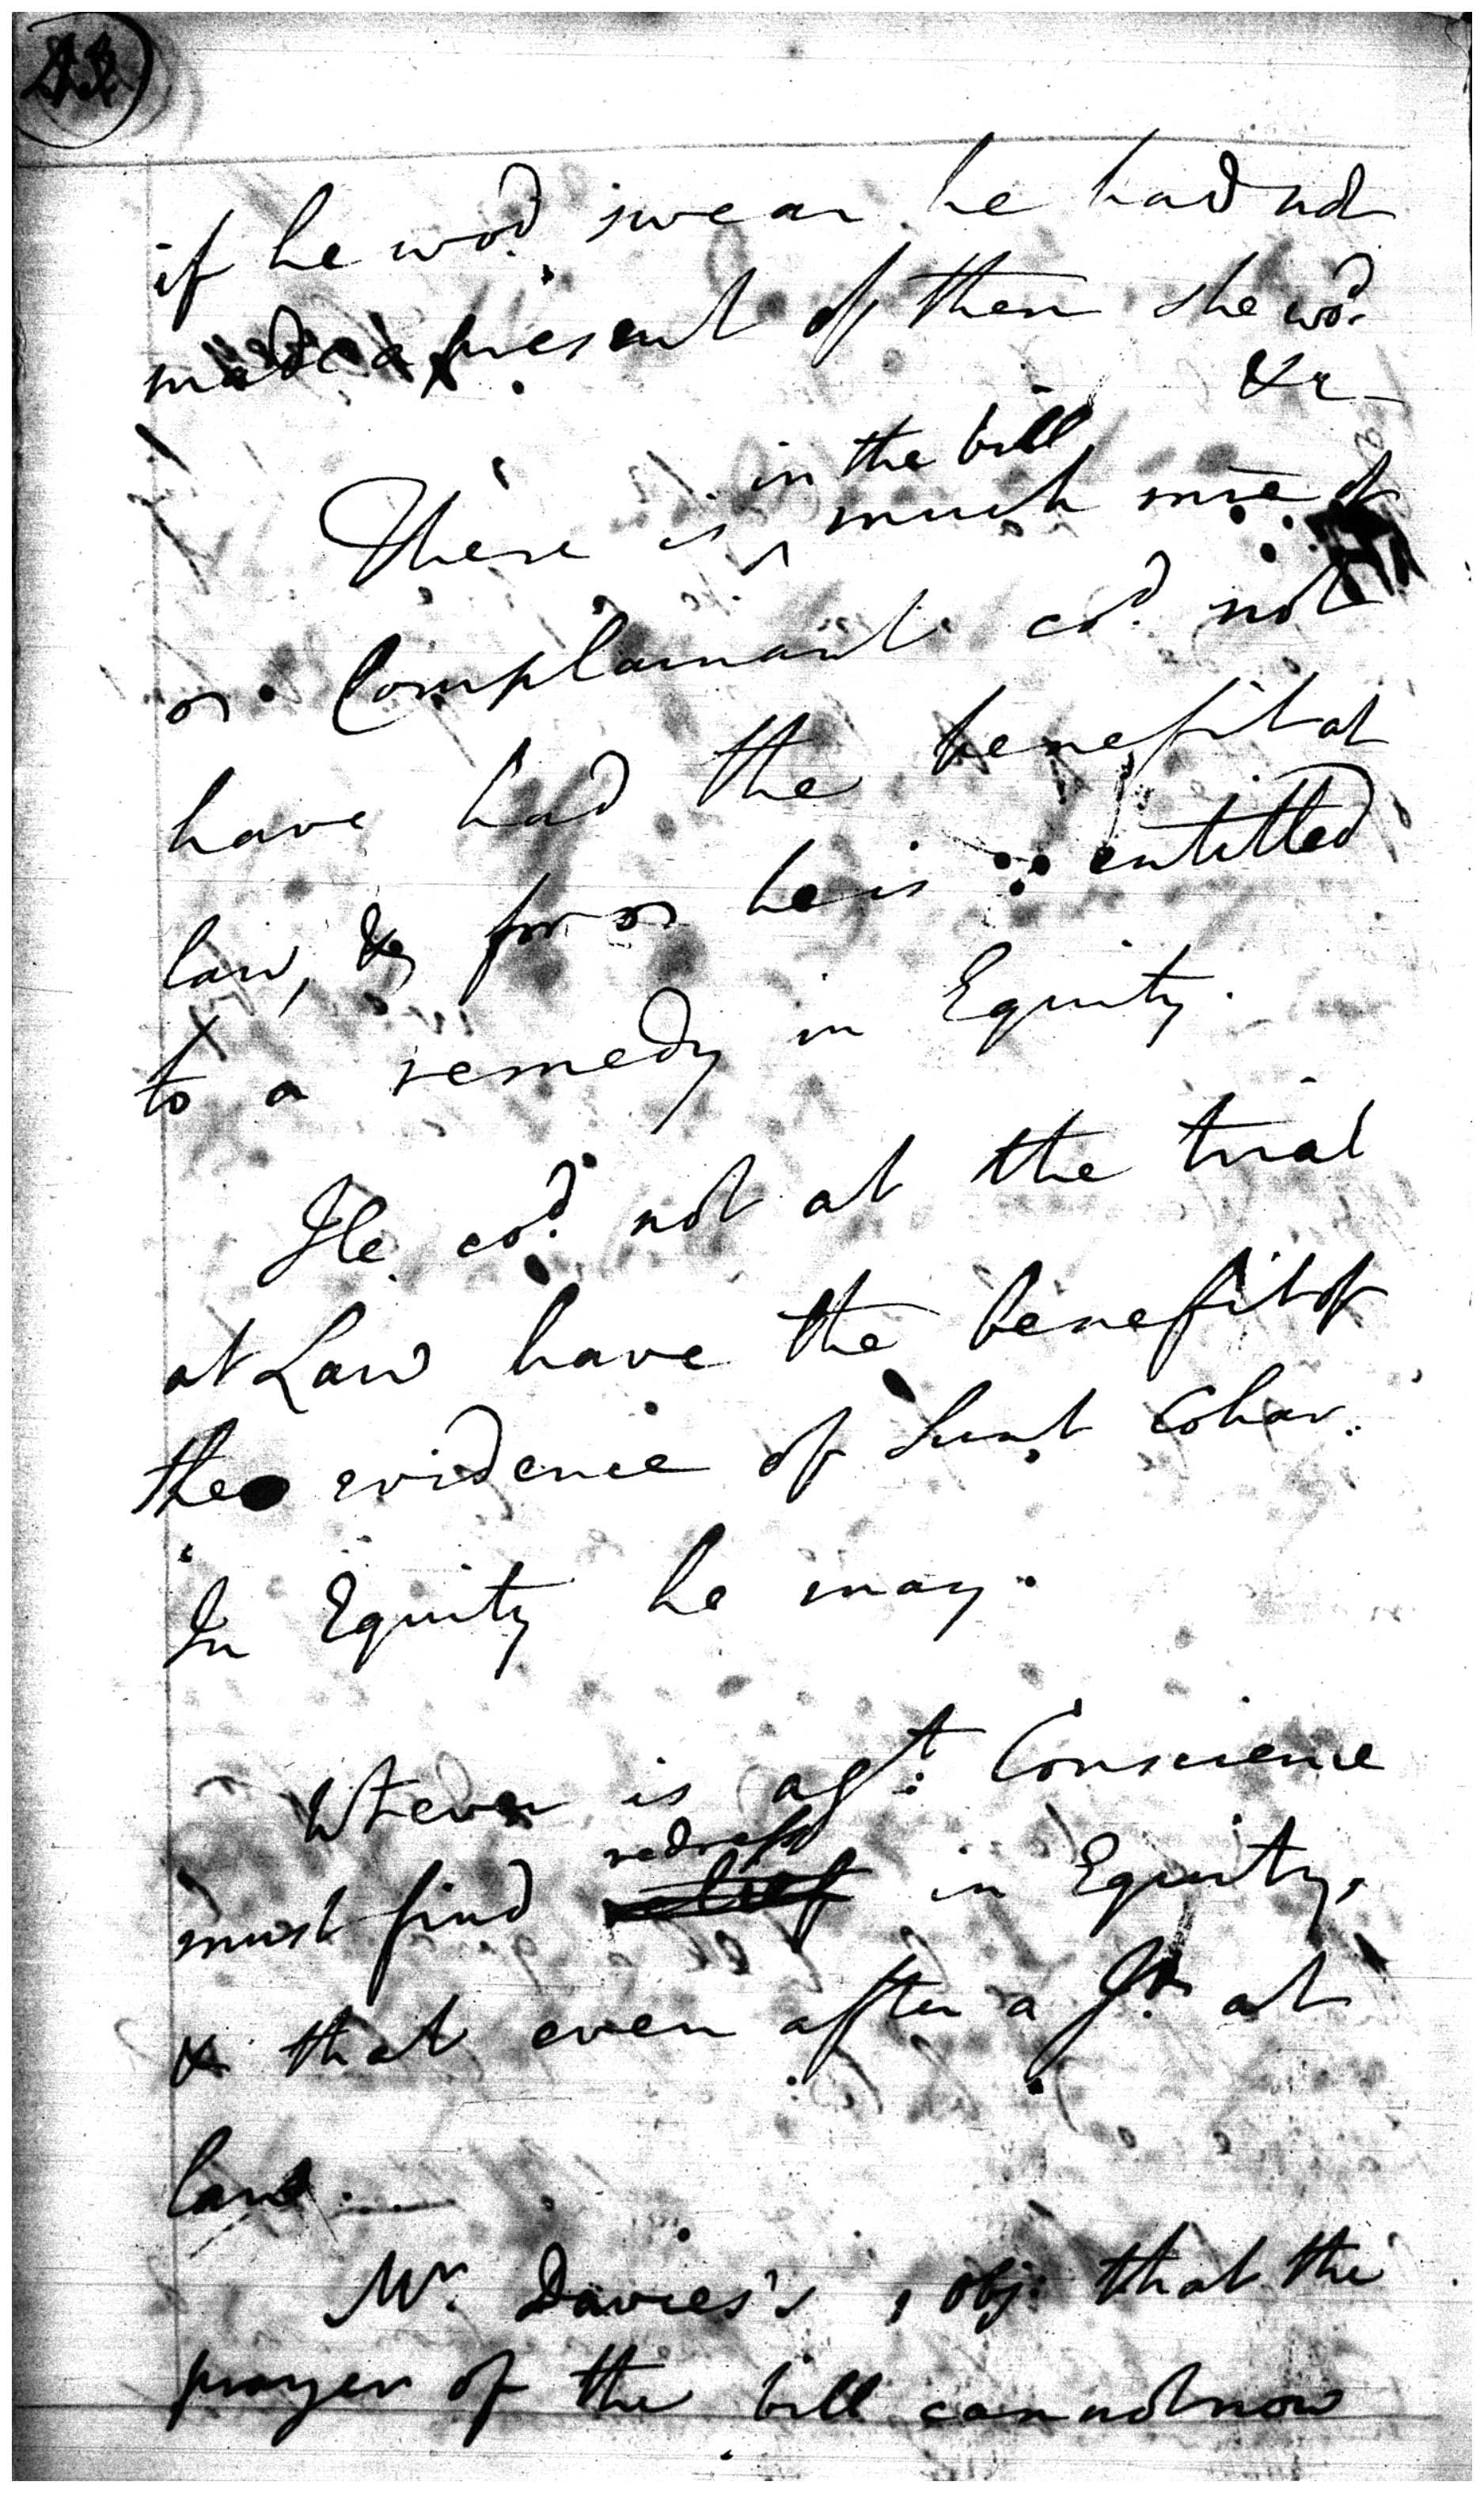 if he wod. swear he had not
made a present of them she wod.
&c
in the bill
There is ^ much more of
Complainant cod. not
have had the benefit at
law, & for he is entitled
to a remedy in Equity.
He cod. not at the trial
at Law have the benefit of
the evidence of Cohav:
In Equity he may.
is agt: Conscience
redress
must find relief in Equity,
& that even after a Jt. at
law
Mr. Davies's obj: that the
prayer of the bill can not now